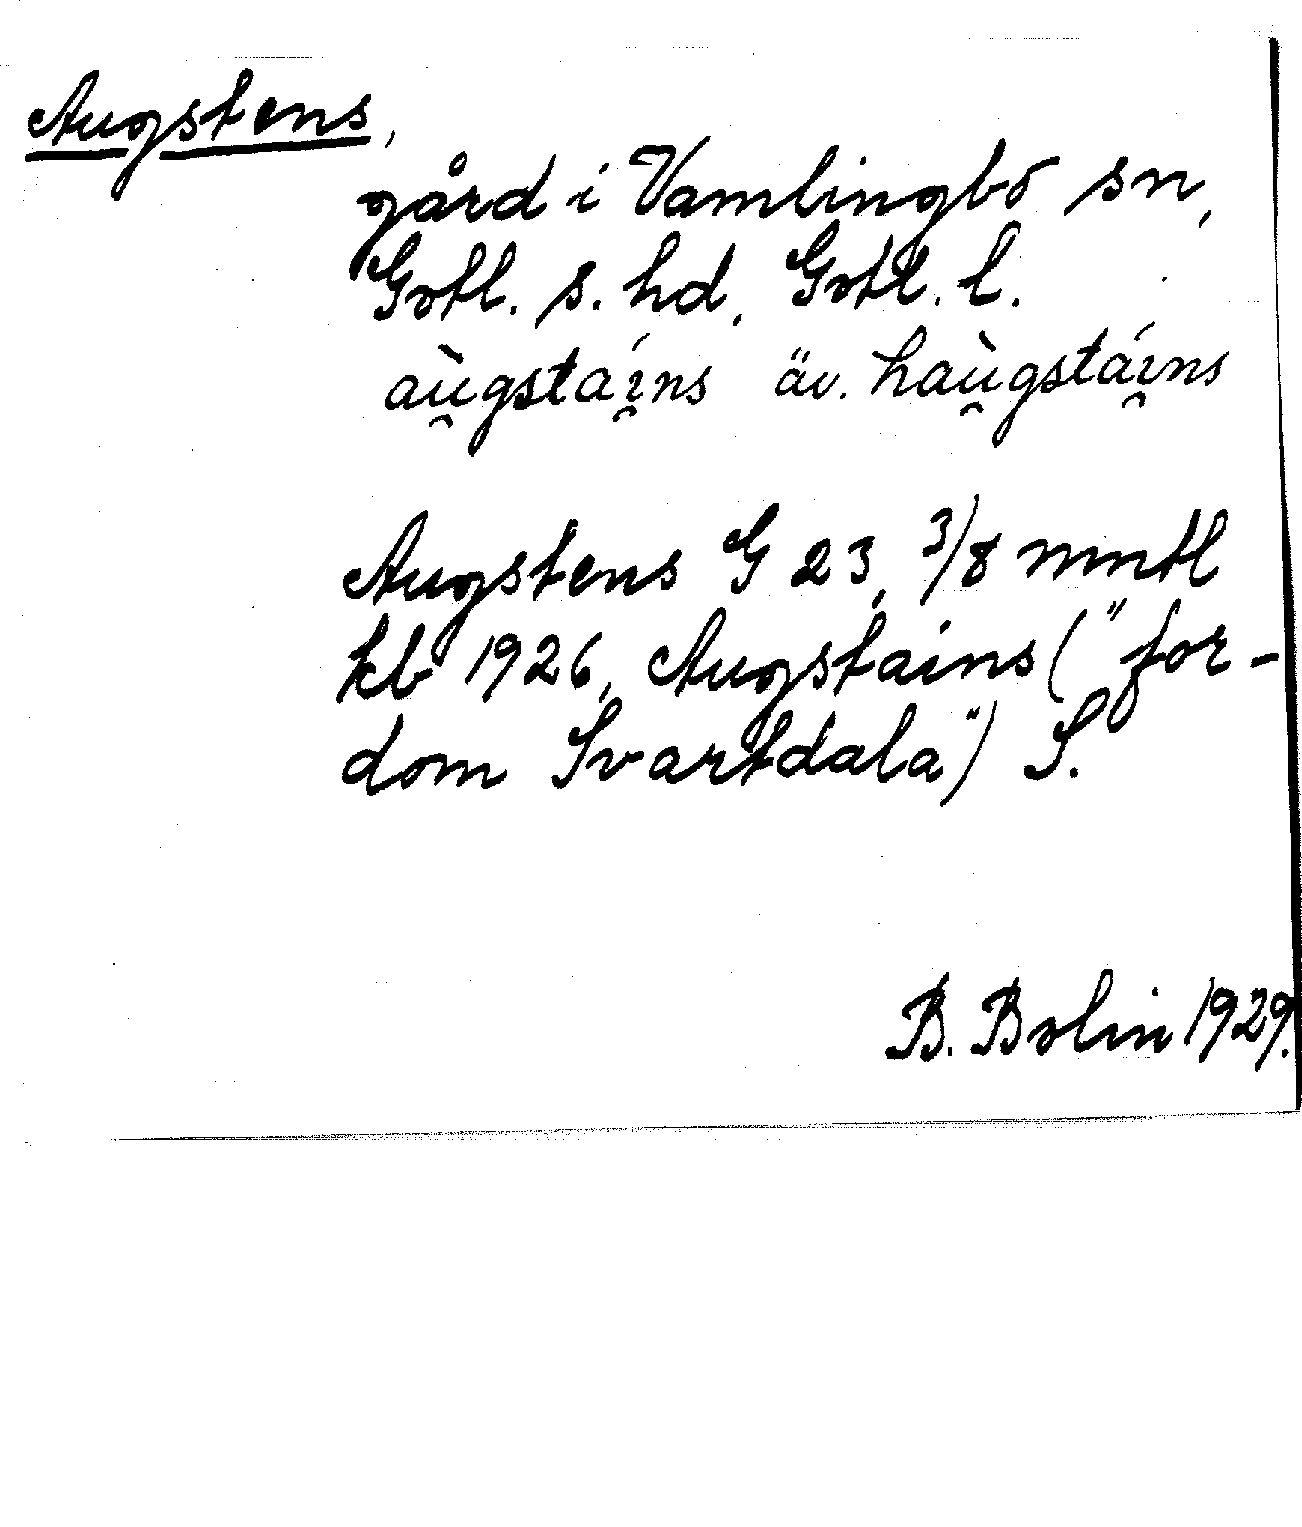 Augstens,
gård i Vamlingbo sn,
Gotl. s. hd, Gotl. l.
aù̯gstái̯ns äv. haù̯gstái̯ns
Augstens G 23, 3/8 mntl
kb 1926, Augstains ("for-
dom Svartdala") S.
B. Bolin 1929.